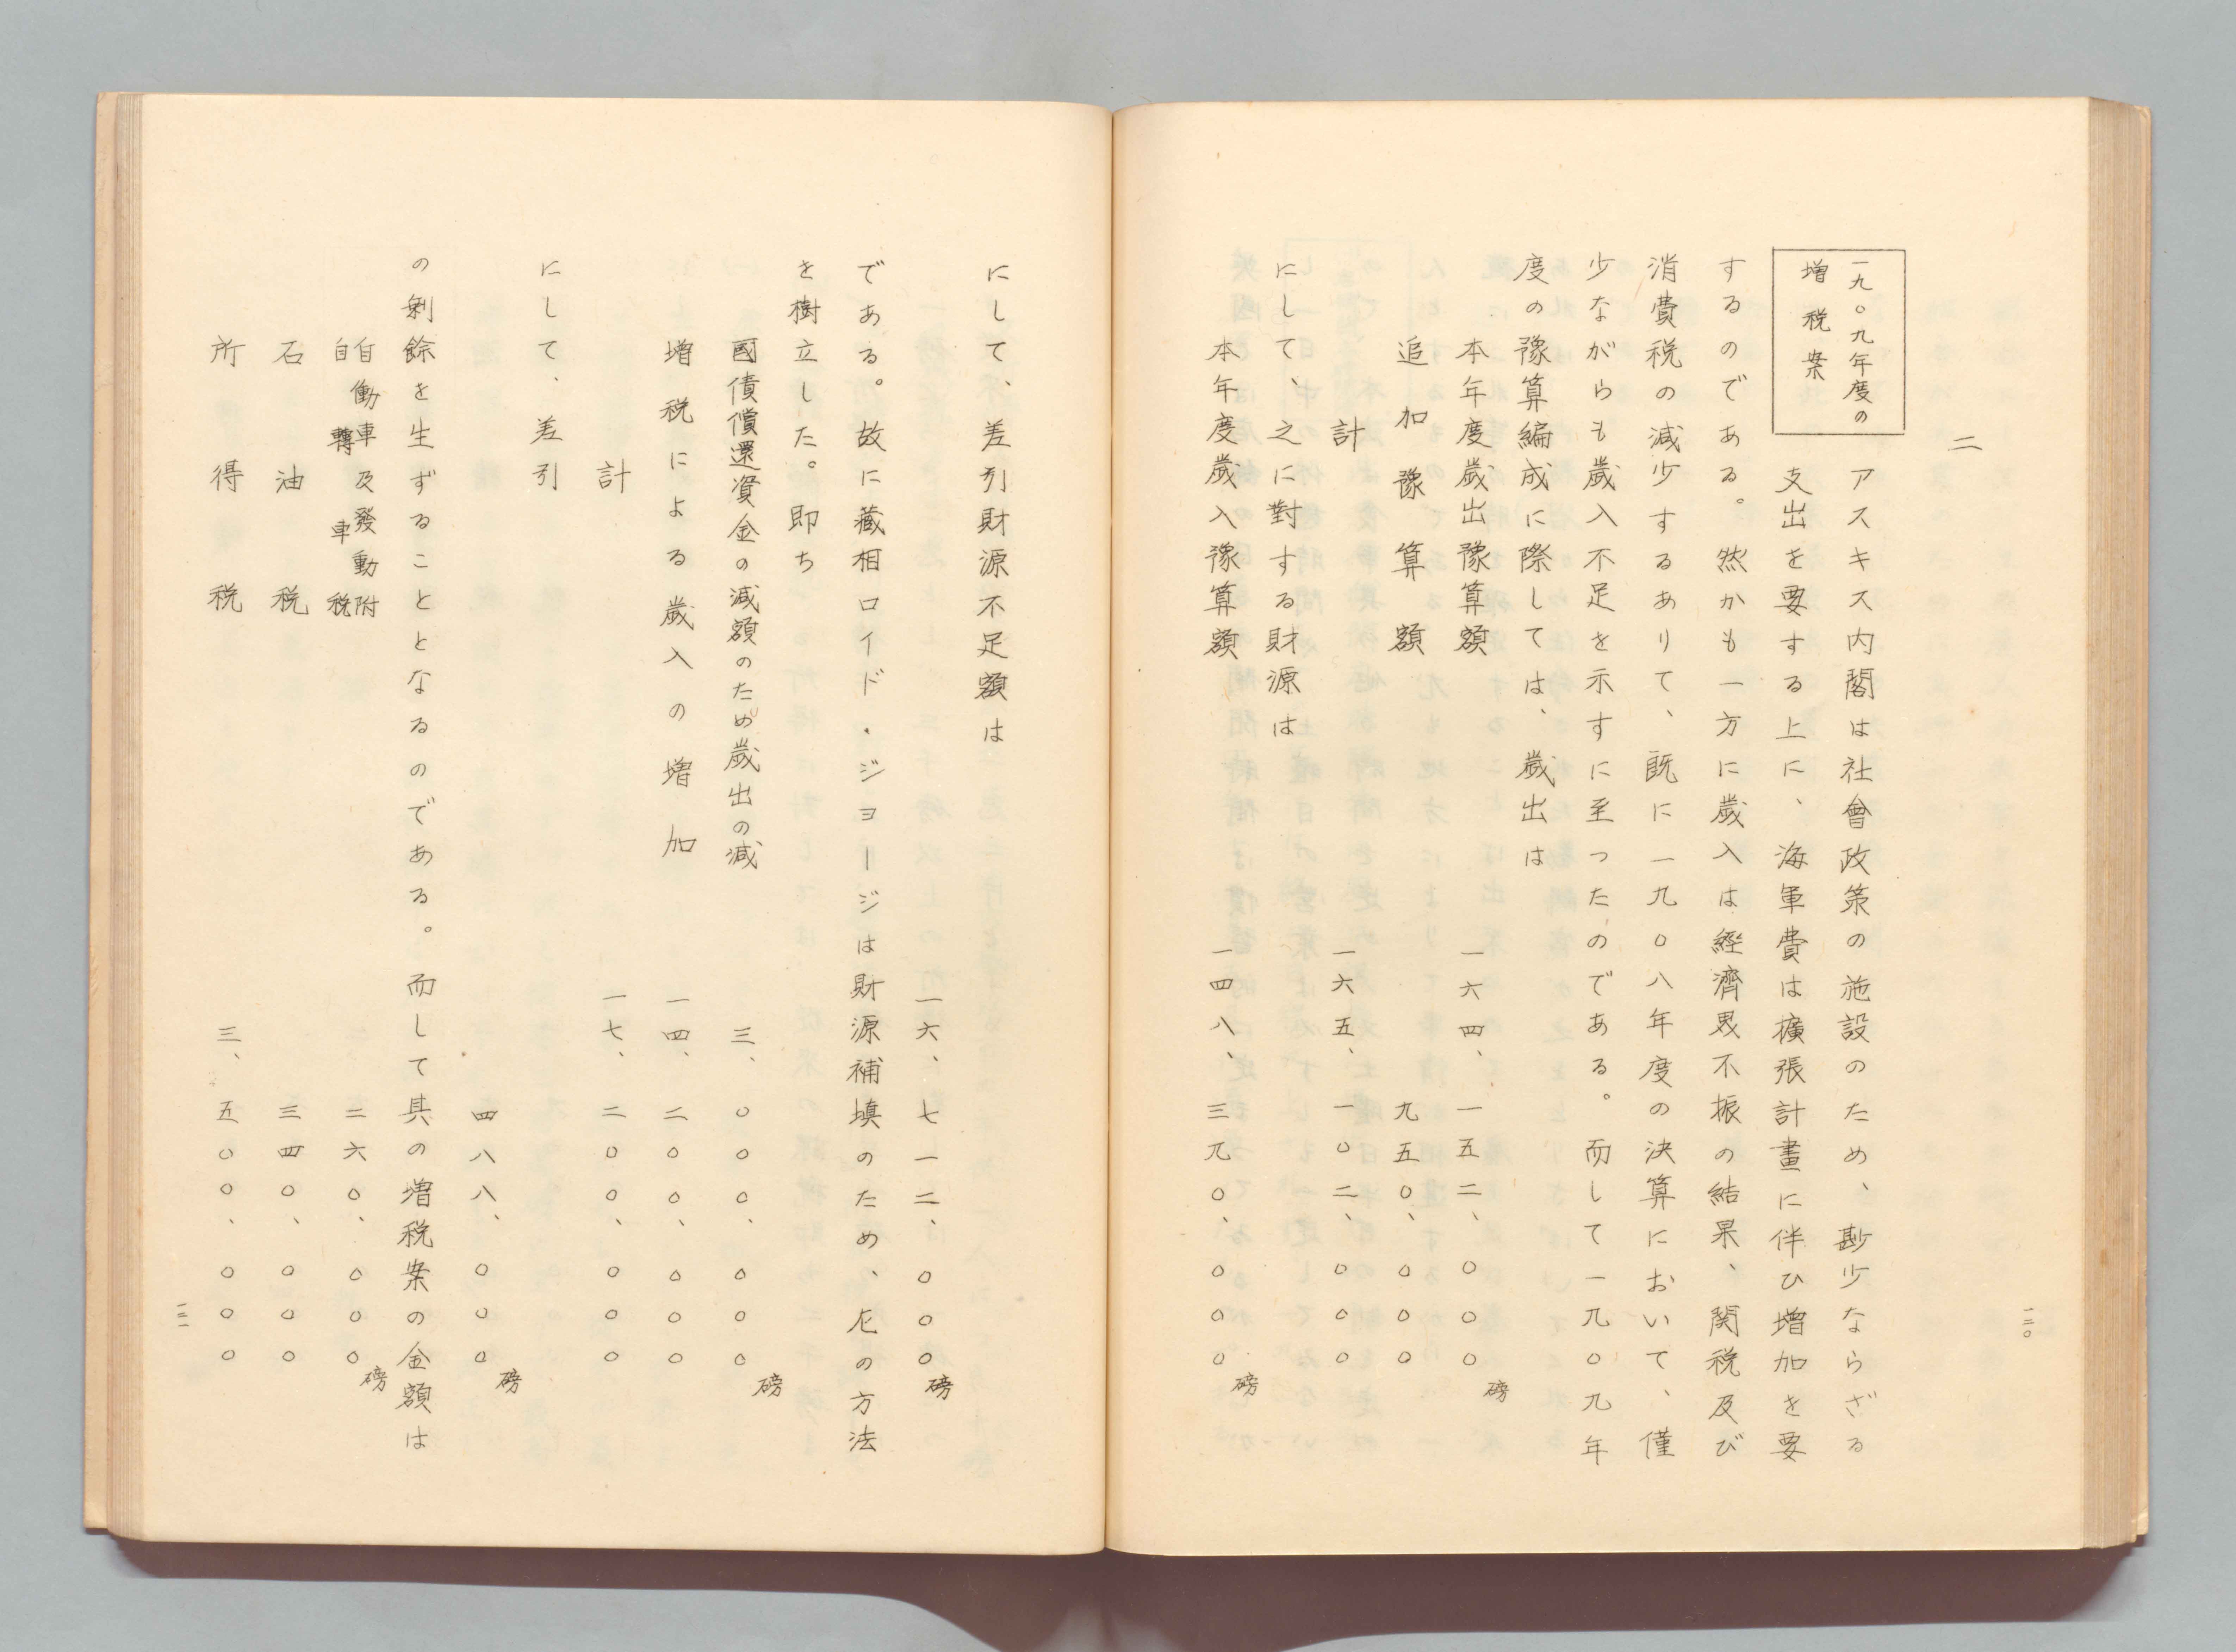 二
一九〇九年度の
増税案
アスキス内閣は社會政策の施設のため、尠少ならざる
支出を要する上に、海軍費は擴張計畫に伴ひ增加を要
するのである。然かも一方に歲入は經濟界不振の結果、関税及び
消費税の減少するありて、既に一九〇八年度の決算において、僅
少ながらも歲入不足を示すに至ったのである。而して一九〇九年
度の豫算編成に際しては、歲出は
本年度歲出豫算額 一六四、一五二、〇〇〇磅
追加豫算額 九五〇、〇〇〇
計 一六五、一〇二、〇〇〇
にして、之に對する財源は
本年度歲入豫算額 一四八、三九〇、〇〇〇磅
一二〇
にして、差引財源不足額は
一六、七一二、〇〇〇磅
である。故に藏相ロイド・ジョージは財源補塡のため、左の方法
を樹立した。即ち
國債償還資金の減額のため歲出の減 三、〇〇〇、〇〇〇磅
増税による歲入の増加 一四、二〇〇、〇〇〇
計 一七、二〇〇、〇〇〇
にして、差引
四八八、〇〇〇磅
の剰餘を生ずることとなるのである。而して其の増税案の金額は
自働車及發動附
自轉車税 二六〇、〇〇〇磅
石油税 三四〇、〇〇〇
所得税 三、五〇〇、〇〇〇
一二一